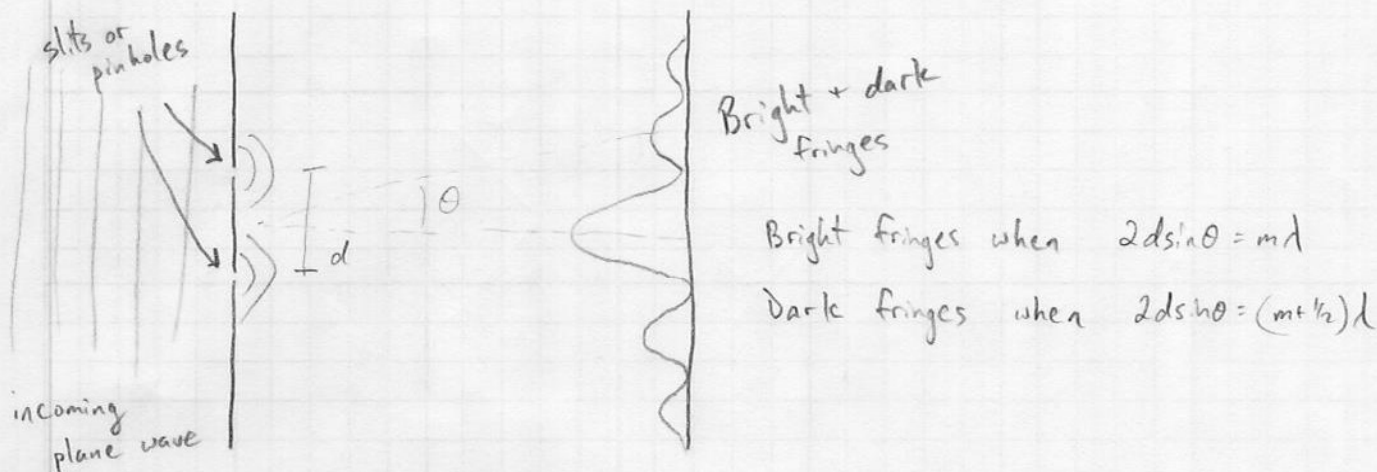 slits or
pinholes
θ
d
incoming
plane wave
Bright + dark
fringes
Bright fringes when 2dsinθ = mλ
Dark fringes when 2dsinθ = (m+½)λ